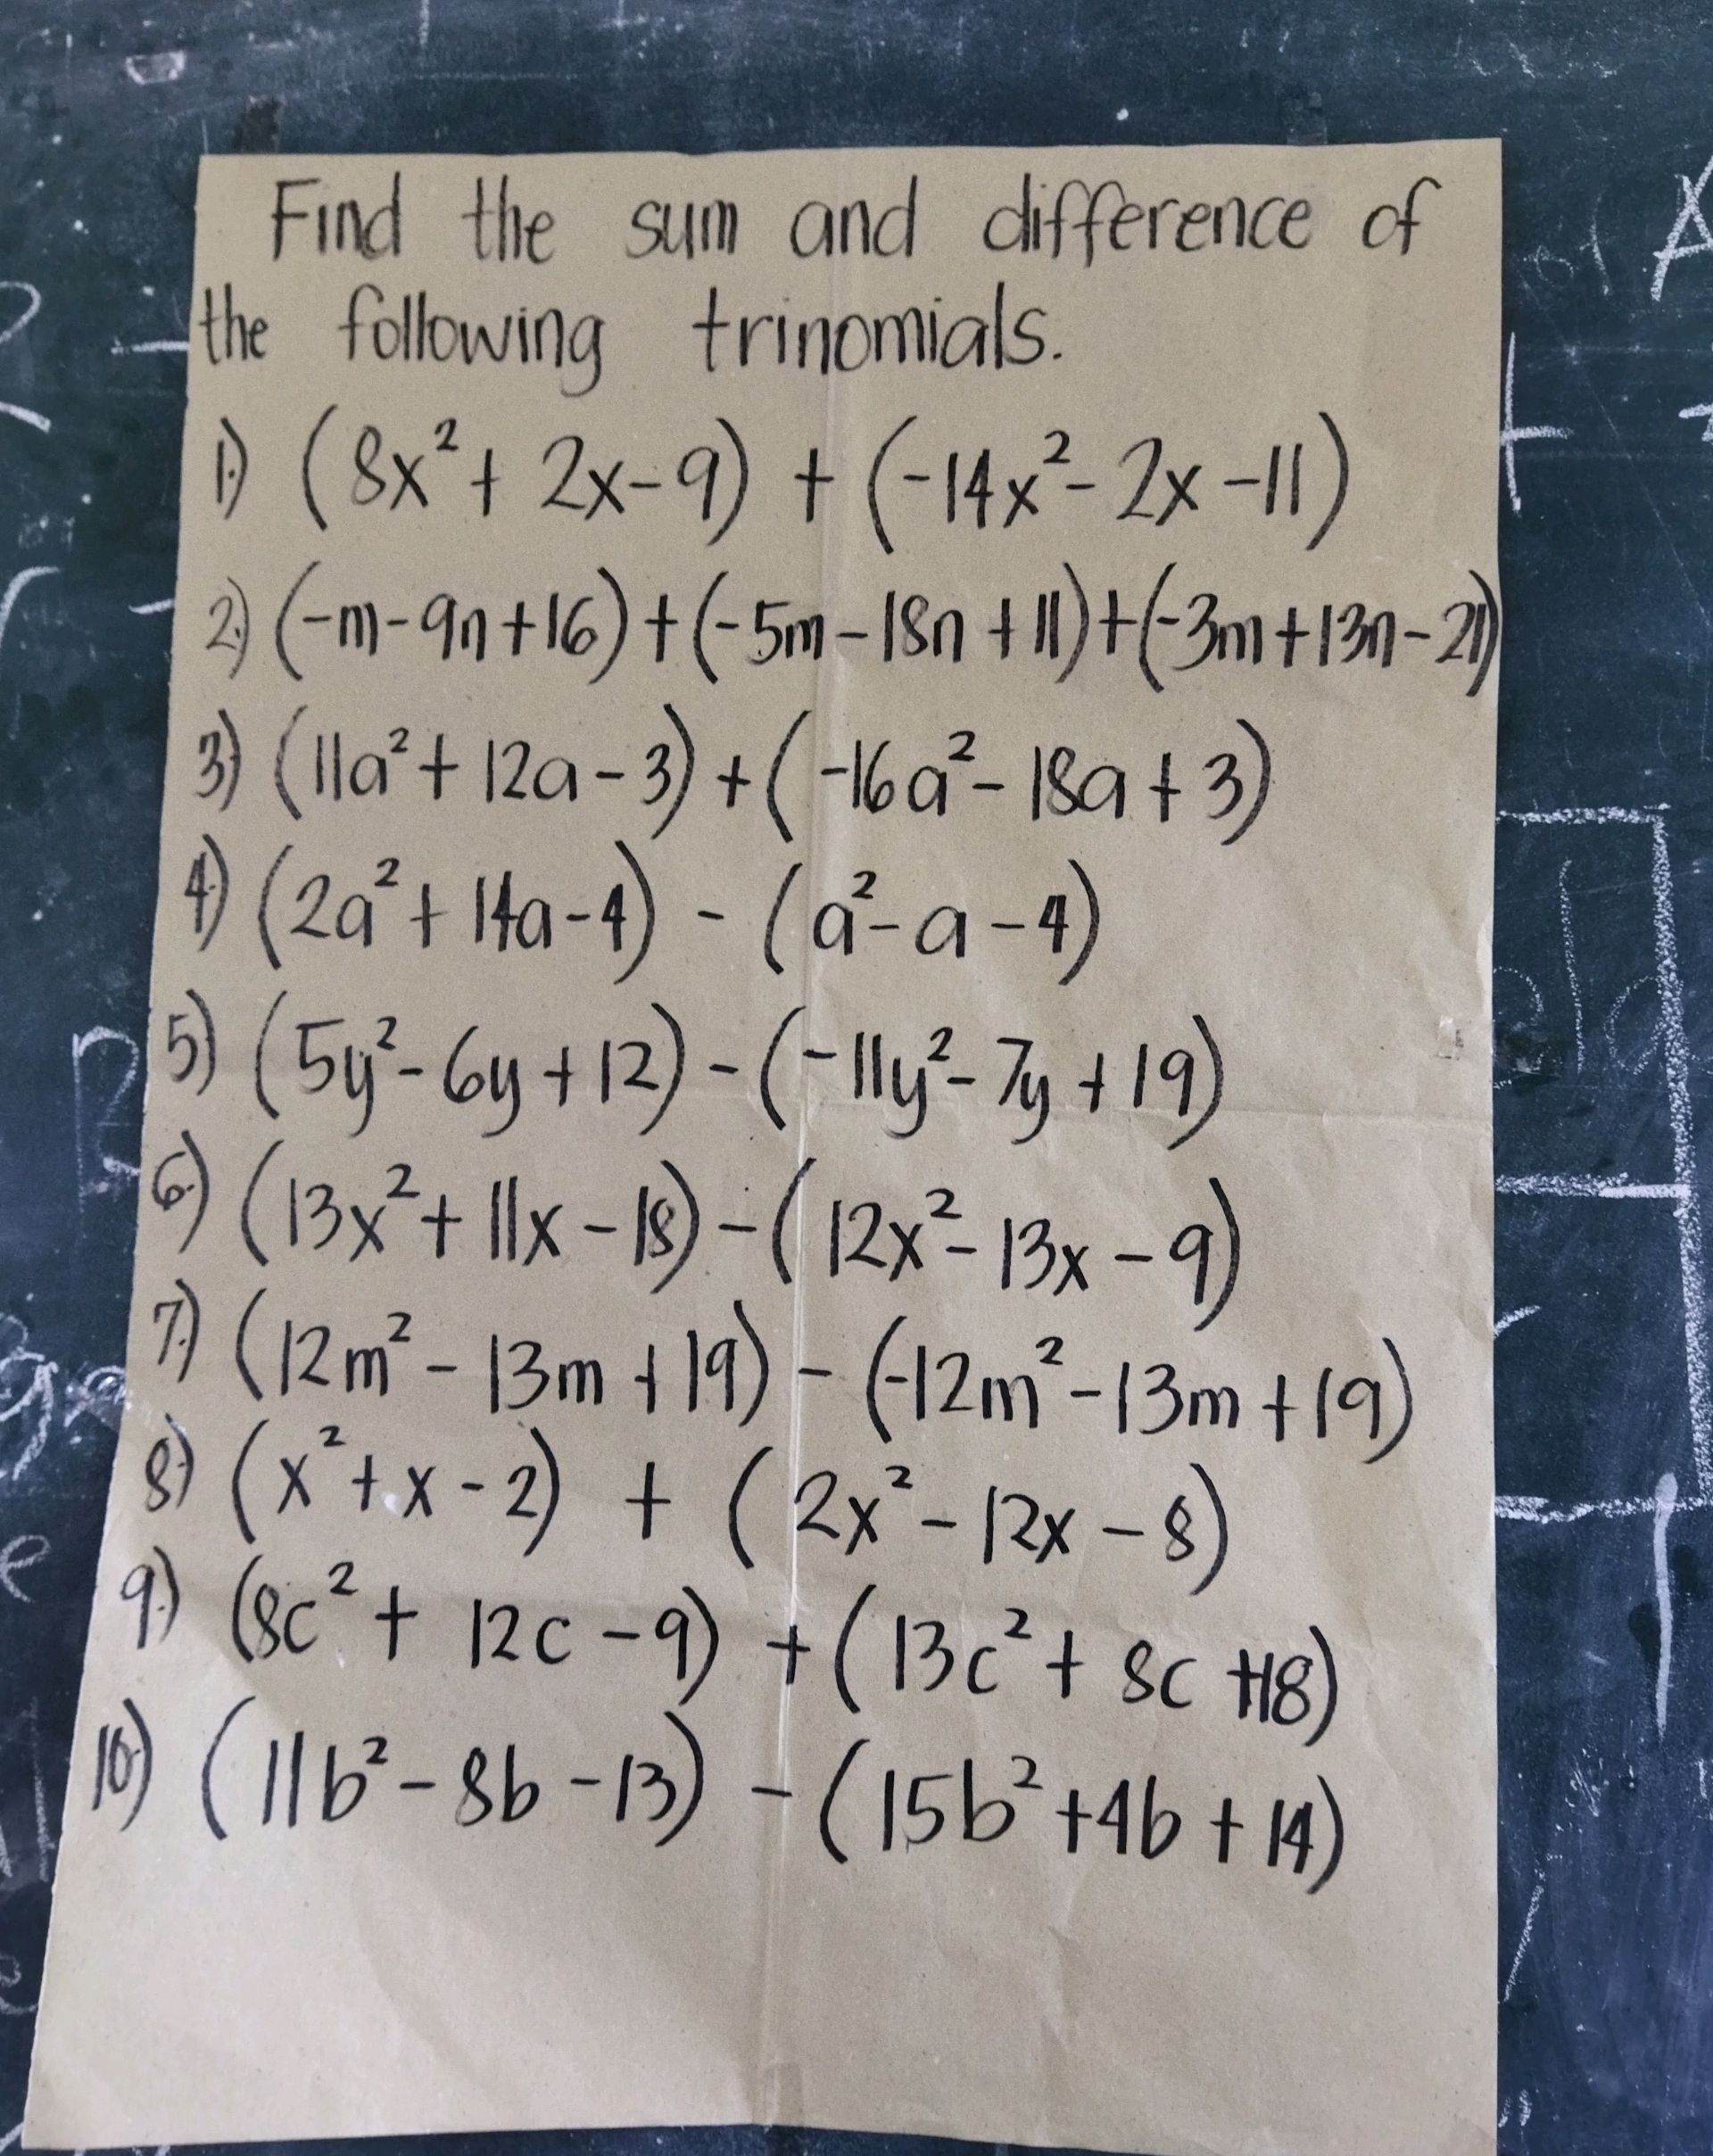 Find the sum and difference of
the following trinomials.
1.) (8x² + 2x - 9) + (-14x² - 2x - 11)
2.) (-m - 9n + 16) + (-5m - 18n + 11) + (-3m + 13n - 21)
3.) (11a² + 12a - 3) + (-16a² - 18a + 3)
4.) (2a² + 14a - 4) - (a² - a - 4)
5.) (5y² - 6y + 12) - (-11y² - 7y + 19)
6.) (13x² + 11x - 18) - (12x² - 13x - 9)
7.) (12m² - 13m + 19) - (-12m² - 13m + 19)
8.) (x² + x - 2) + (2x² - 12x - 8)
9.) (8c² + 12c - 9) + (13c² + 8c + 18)
10.) (11b² - 8b - 13) - (15b² + 4b + 14)